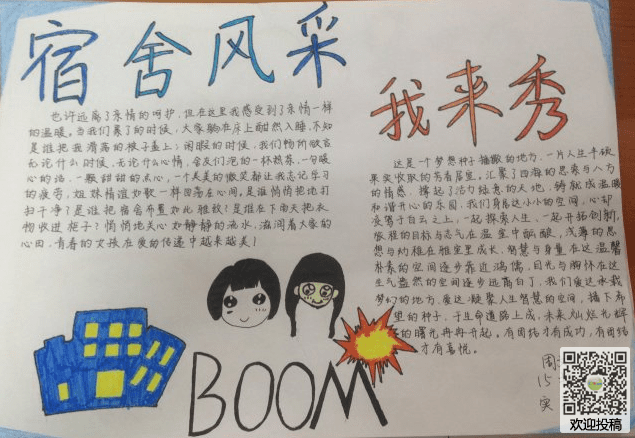 宿舍风采
我来秀
也许远离了亲情的呵护,但在这里我感受到了亲情一样
的温暖。当我们累了的时候,大家躺在床上酣然入睡,不知
是谁把我滑落的被子盖上;闲暇的时候,我们畅所欲言
无论什么时候,无论什么心情,舍友们泡的一杯热茶,一句暖
心的话,一颗甜甜的点心,一个美美的微笑都让我忘记学习
的疲劳,姐妹情谊如歌一样回荡在心间,是谁悄悄把地打
扫干净了?是谁把宿舍布置如此雅致?是谁在下雨天把衣
物收进柜子?悄悄地关心如静静的流水,滋润着大家的
心田,青春的女孩在爱的传递中越来越美!
这是个梦想种子播撒的地方,一片人生丰硕
果实收取的秀香居室,汇聚了四海的思索与八方
的情感,撑起了活力绿意的天地,铸就成温暖
和谐开心的乐园,我们身居这小小的空间,心却
交驾于白云之上,一起探索人生,一起开拓创新,
旅程的目标与志气在温室中酝酿,浅薄的思
想与幼稚在雅室里成长,智慧与身量在这温馨
朴素的空间逐步靠近鸿儒,目光与胸怀在这
生气盎然的空间逐步远离自了,我们爱这承载
梦幻的地方,爱这凝聚人生智慧的空间,播下希
望的种子,于生命道路上成,未来灿烂光辉
的曙光冉冉升起。有团结才有成功,有团结
才有喜悦。
BOOM
周
15
实
欢迎投稿